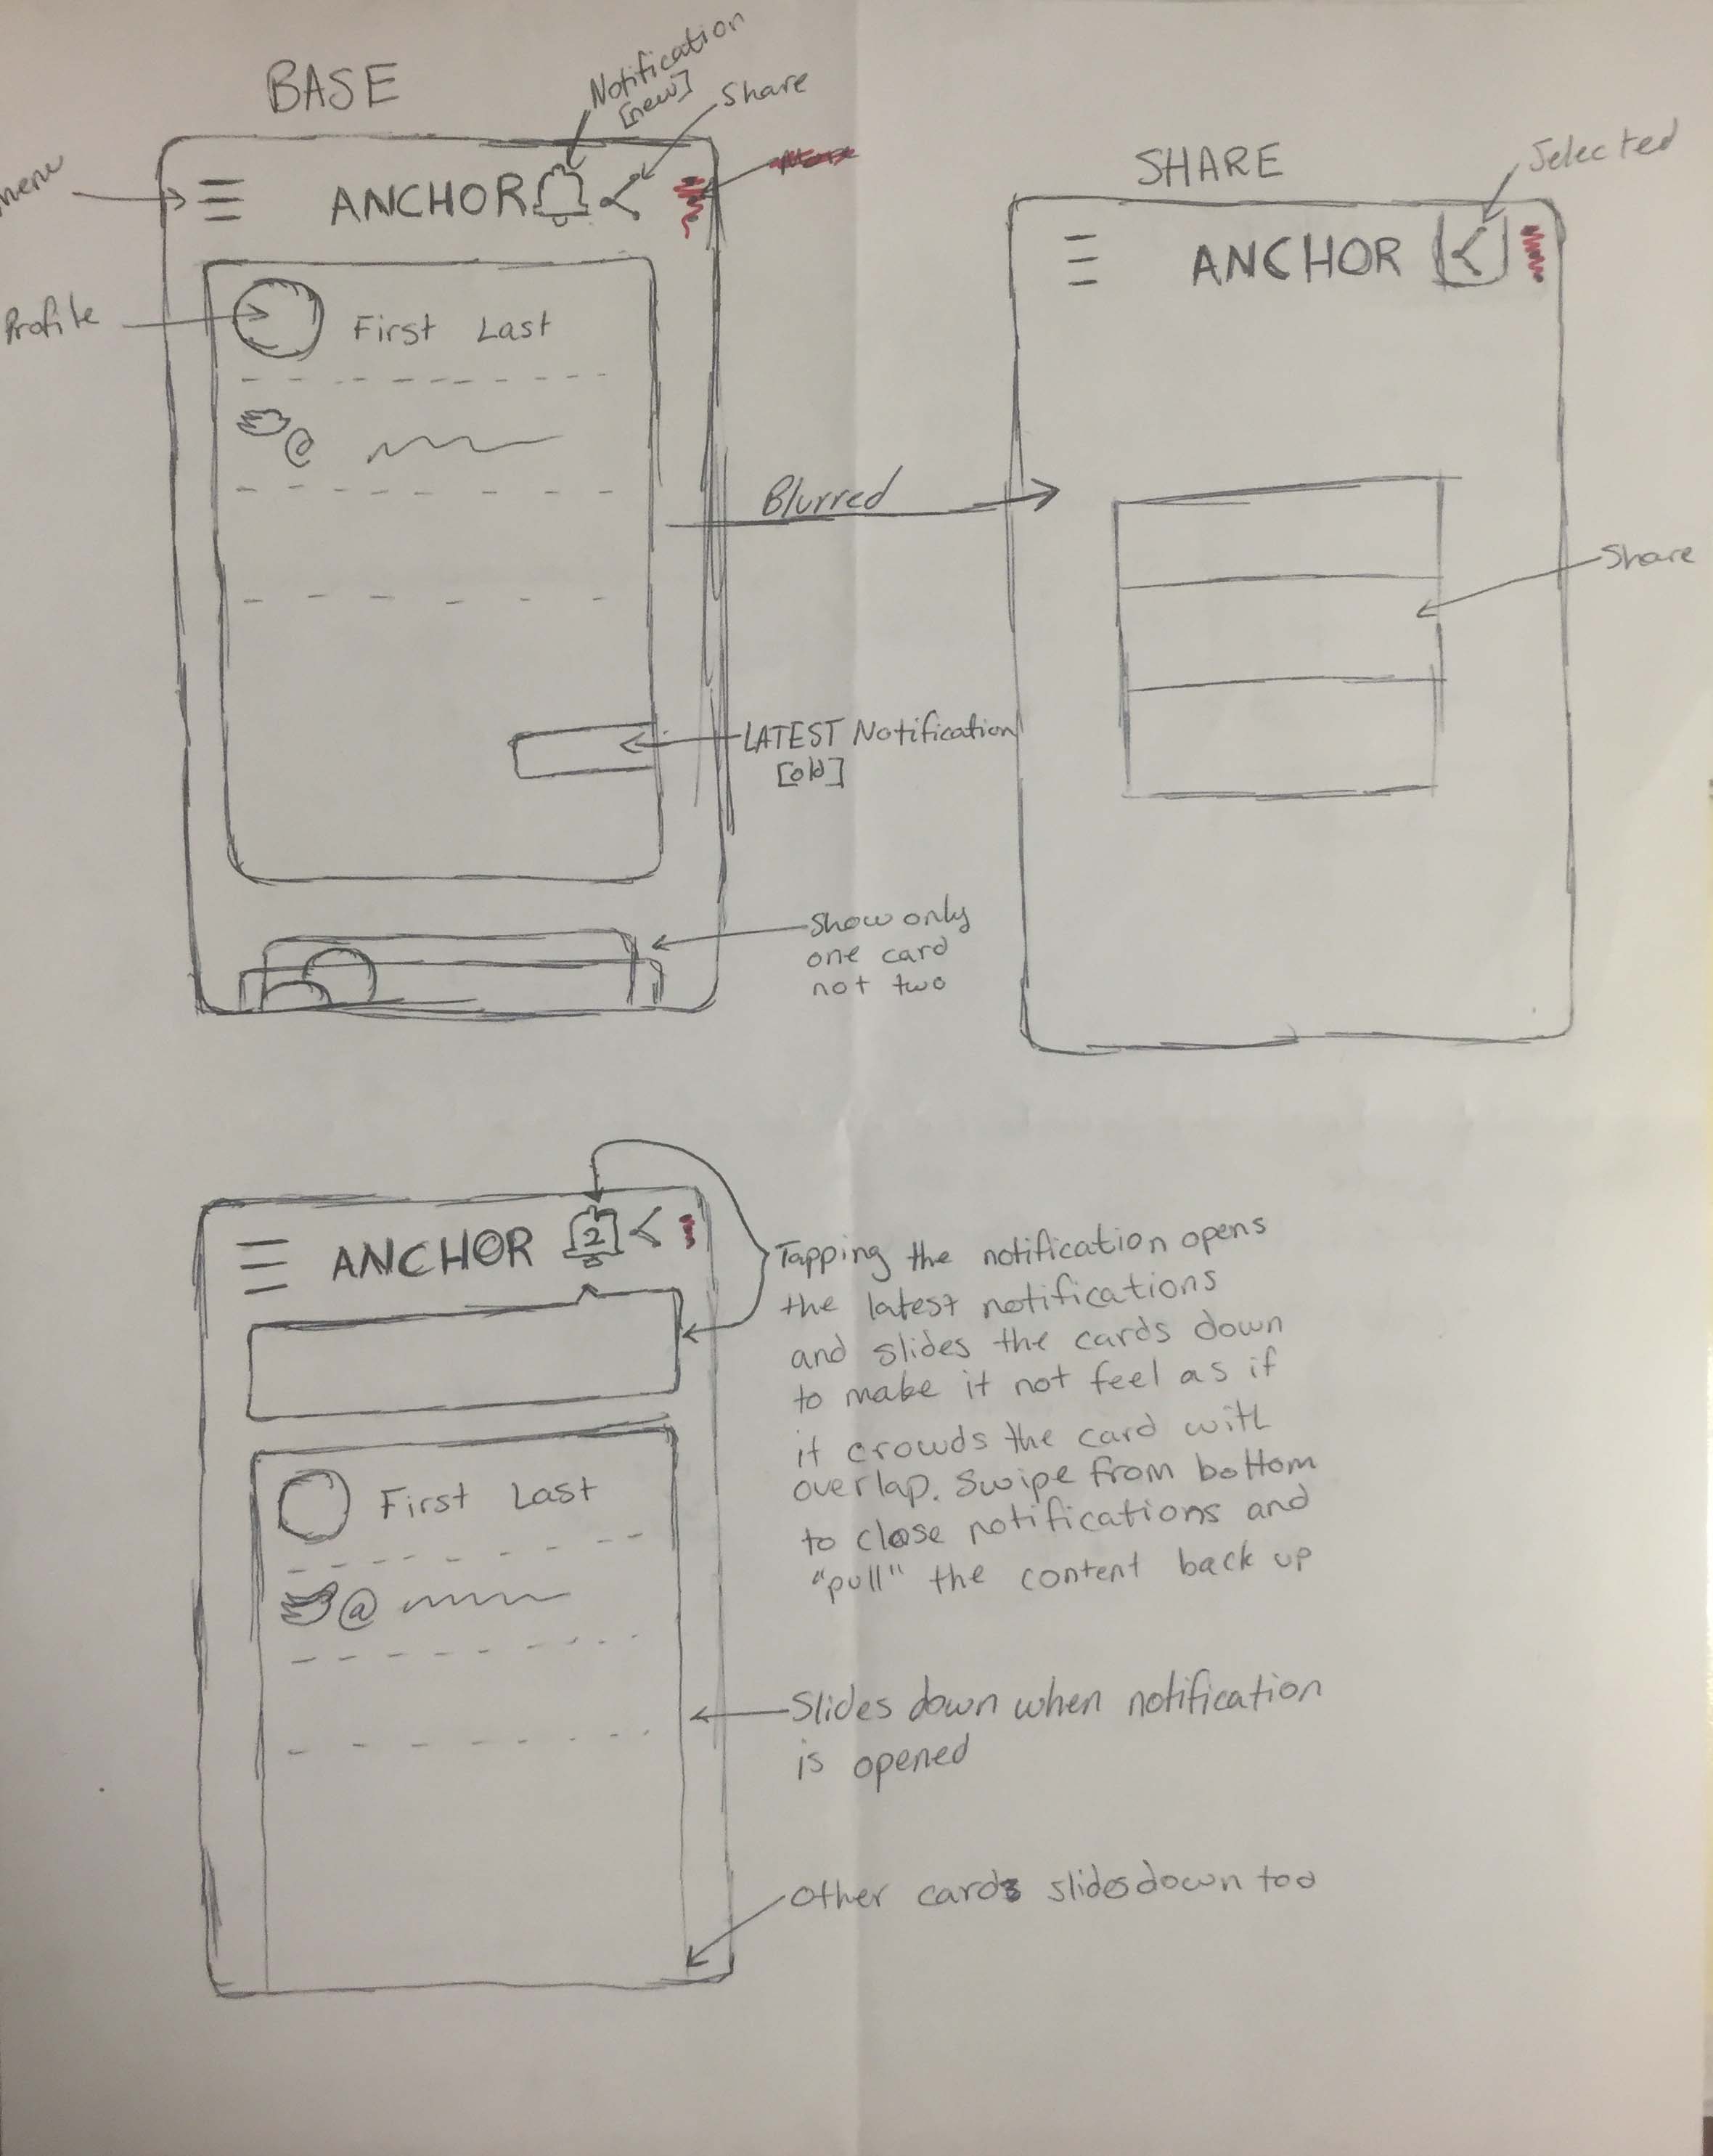 BASE
Notification
[new]
Share
menu
ANCHOR
Profile
First Last
@
Blurred
LATEST Notification
[old]
Show only
one card
not two
SHARE
Selected
ANCHOR
Share
ANCHOR
2
First Last
@
Tapping the notification opens
the latest notifications
and slides the cards down
to make it not feel as if
it crowds the card with
overlap. Swipe from bottom
to close notifications and
"pull" the content back up
Slides down when notification
is opened
Other cards slides down too